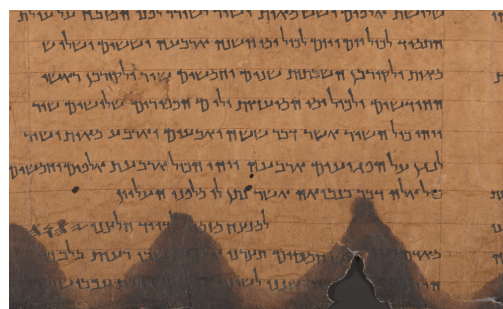 שלושת אלפים ושש מאות ושיר לשורר לפני המזבח על עולת
התמיד לכול יום ויום לכול ימי השנה ארבעה וששים ושלוש
מאות ולקורבן השבתות שנים וחמשים שיר ולקורבן ראשי
החודשים ולכול ימי המועדות ולים הכפורים שלושים שיר
ויהי כול השיר אשר דבר ששה ואבעים וארבע מאות ושיר
לנגן על הפגועים ארבעה ויהי הכול ארבעת אלפים וחמשים
כול אלה דבר בנבואה אשר נתן לו מלפני העליון
למנצח מזמור לדויד חלצני 𐤉𐤄𐤅𐤄
חמסים רעות בלב
שננו